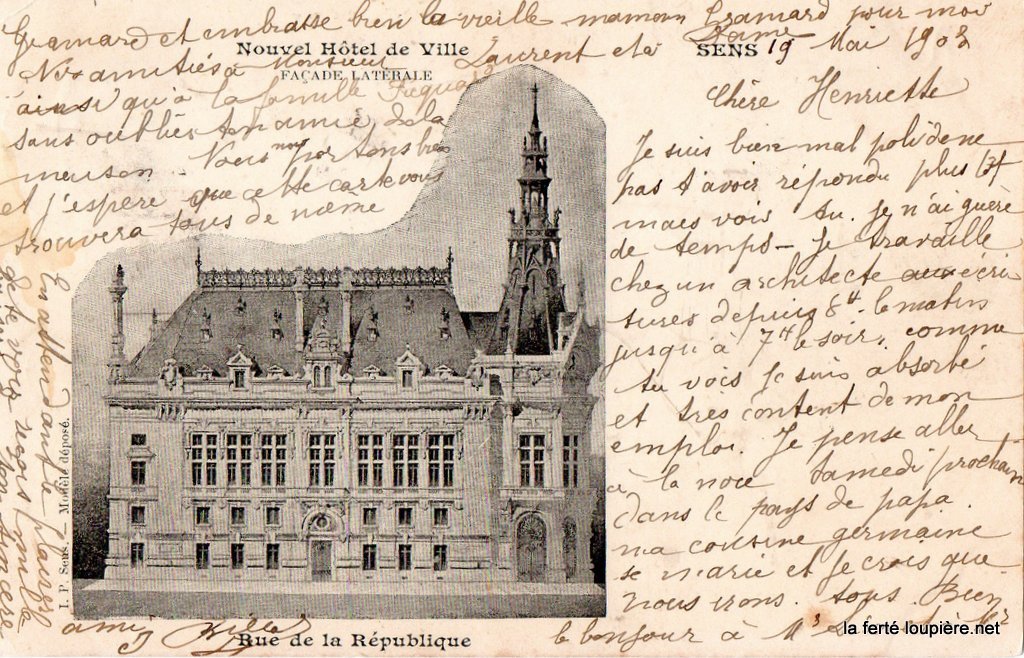 Nouvel Hôtel de Ville
FAÇADE LATÉRALE
SENS 19 Mai 1903
Chère Henriette
Je suis bien mal poli de ne
pas t'avoir répondu plus tôt
mais vois tu. je n'ai guère
de temps - Je travaille
chez un architecte aux écri
tures depuis 8h. le matin
jusqu'à 7h le soir, comme
tu vois je suis absorbé
et très content de mon
emploi. Je pense aller
à la noce samedi prochain
dans le pays de papa
ma cousine germaine
se marie et je crois que
nous irons. tous. Bien
le bonjour à Mr
Gramard et embrasse bien la vieille maman Gramard pour moi
Nos amitiés à Monsieur Laurent et à Dame
ainsi qu'à la famille
sans oublier ton amie de la
meuson. Nous nous portons bien
et j'espère que cette carte vous
trouvera tous de même
En attendant le plaisir
de te voir reçois Camila
ton sincère
ami
I. P. Sens. — Modèle déposé.
Rue de la République
la ferté loupière.net